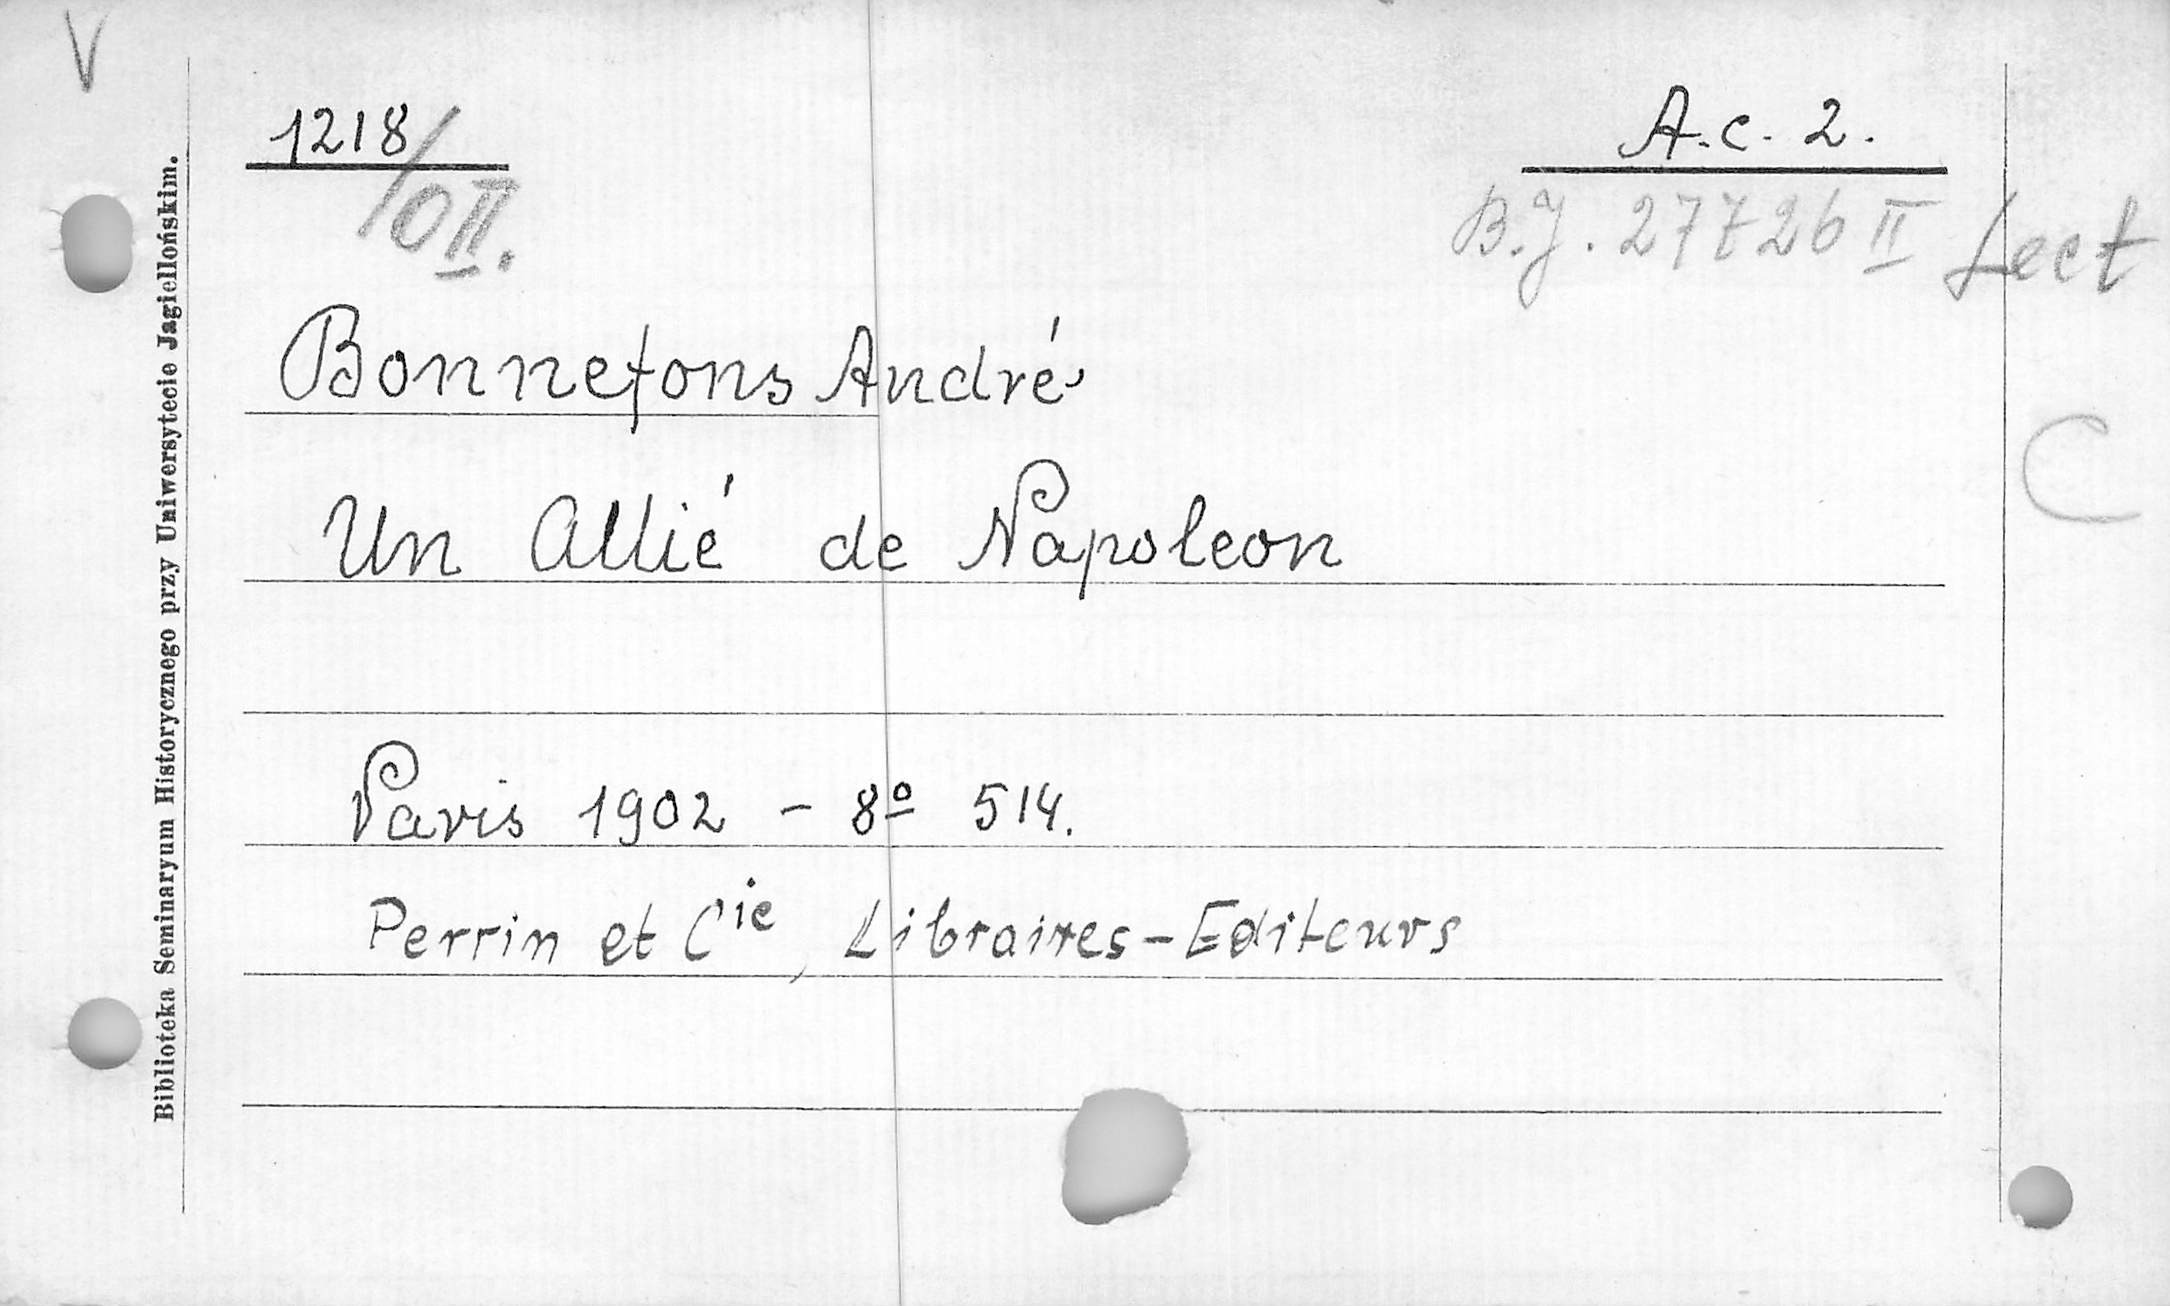 V
1218/OII.
A.c. 2.
B.J. 27726 II Lect
Bonnefons André
C
Un Allié de Napoleon
Paris 1902 - 8º 514.
Perrin et Cie, Libraires-Editeurs
Biblioteka Seminaryum Historycznego przy Uniwersytecie Jagiellońskim.